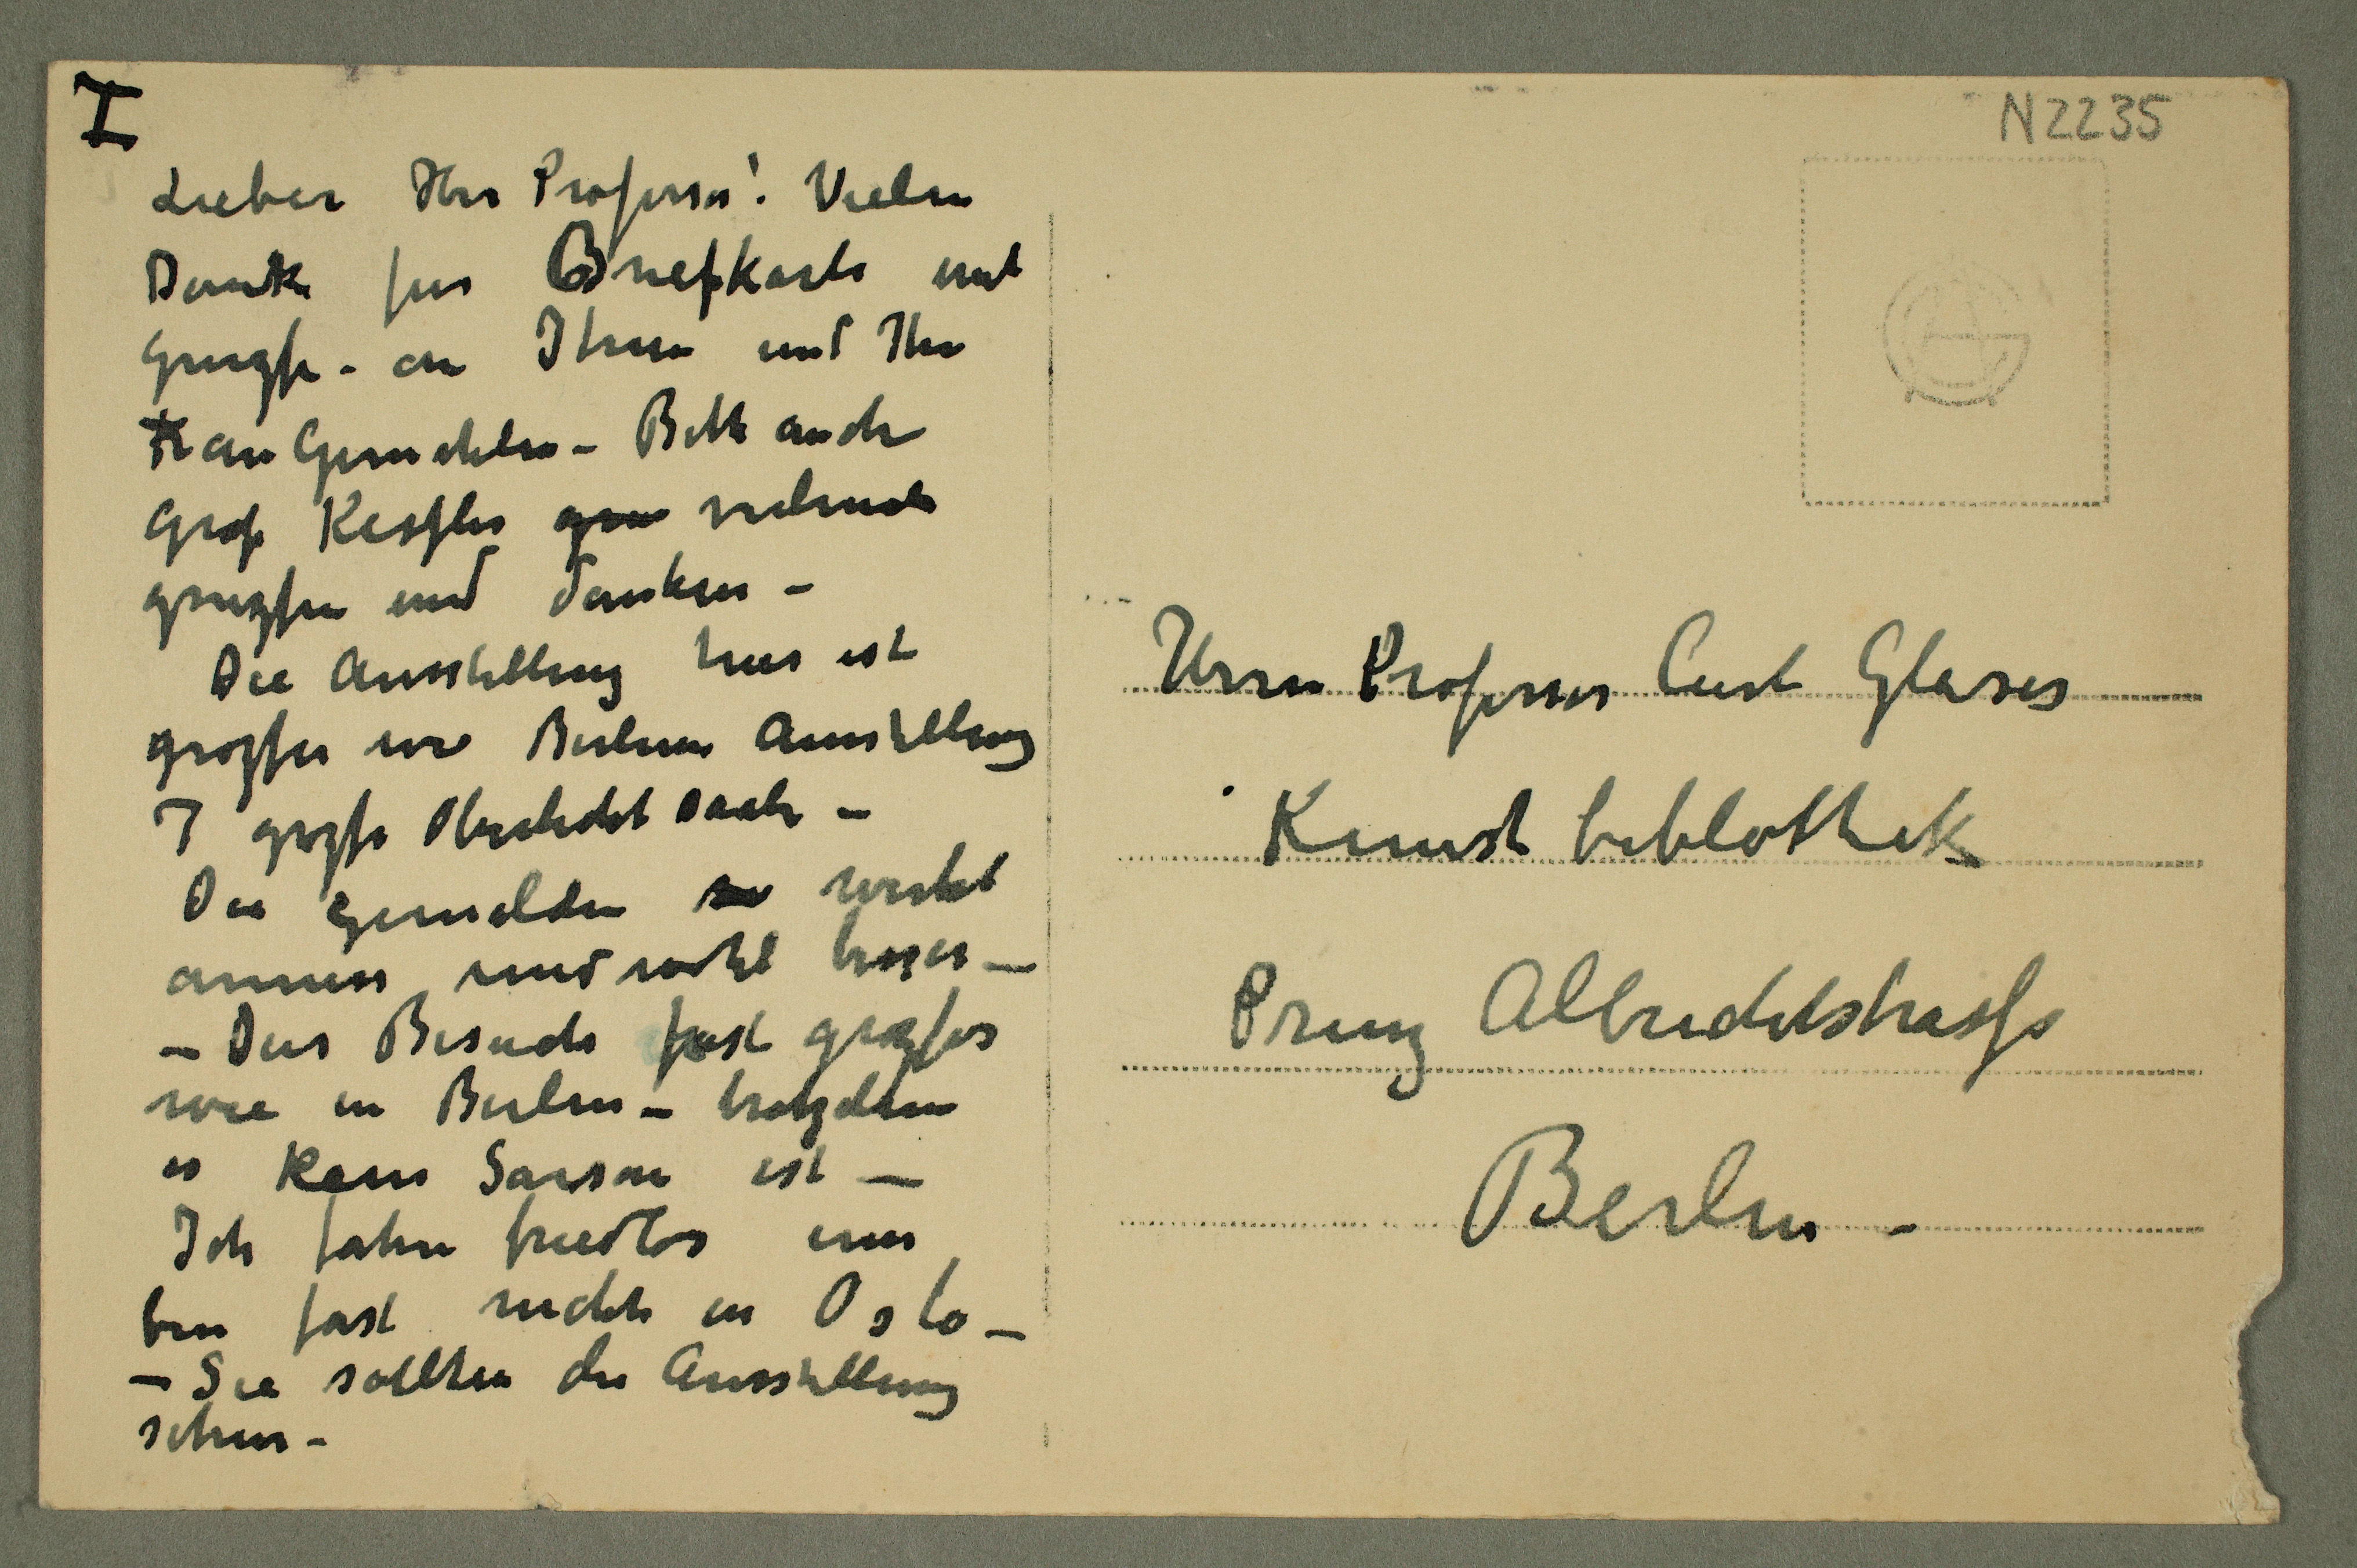 I
N2235
Lieber Herr Professor! Vielen
Dank für Briefkarte und
Gruzse - an Ihnen und Ihr
Frau Gemahlin - Bitte auch
Graf Kessler vielmals
gruzsen und danken -
Die Ausstellung hier ist
grozser wie Berliner Ausstellung
7 grozse Oberlicht Saale -
Die Gemälden wirkt
anners und wohl besser -
- Der Besuch fast grozser
wie in Berlin - trotzdem
es kein Saison ist -
Ich fahre friedlos um
bin fast nicht in Oslo -
- Sie sollten die Ausstellung
sehen -
Herrn Professor Curt Glaser
Kunstbiblothek
Prinz Albrechtstrasse
Berlin -